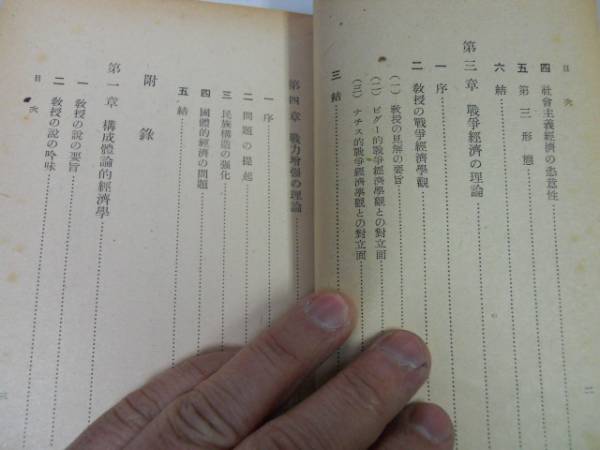 目次
四 社會主義經濟の恣意性
五 第三形態
六 結
第三章 戰爭經濟の理論
一 序
二 教授の戰爭經濟學觀
(一) 教授の見解の要旨
(二) ピグー的戰爭經濟學觀との對立面
(三) ナチス的戰爭經濟學觀との對立面
三 結
二
第四章 戰力增强の理論
一 序
二 問題の提起
三 民族構造の强化
四 國體的經濟の問題
五 結
附錄
第一章 構成體論的經濟學
一 敎授の說の要旨
二 敎授の說の吟味
目次
三